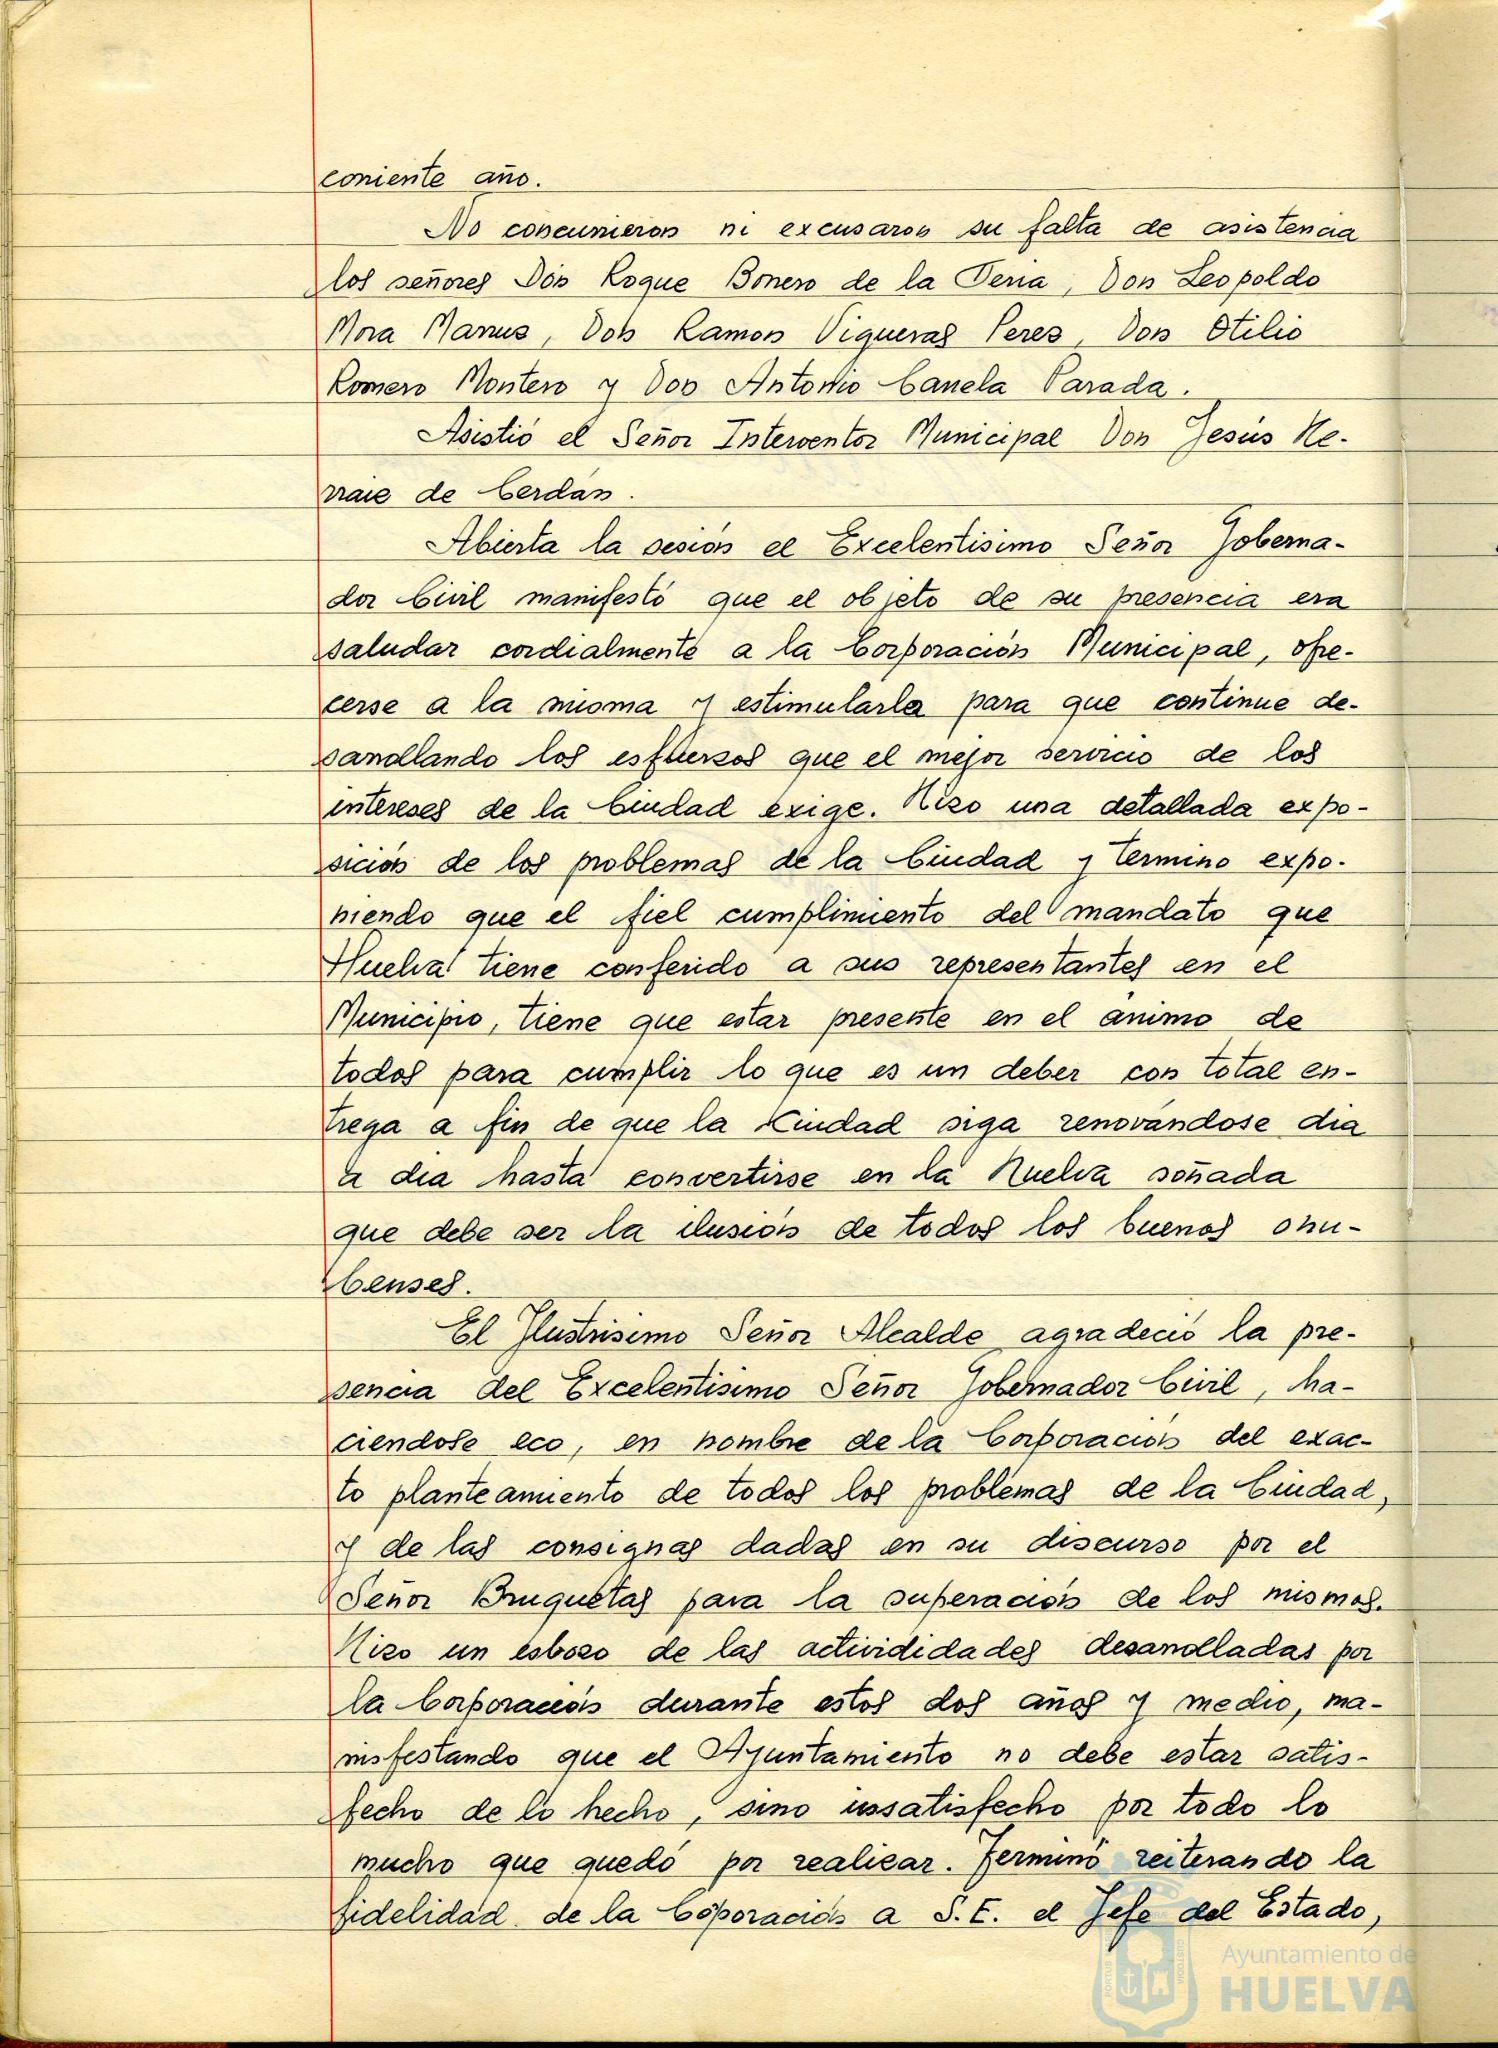 corriente año.
No concurrieron ni excusaron su falta de asistencia
los señores Don Roque Borrero de la Feria, Don Leopoldo
Mora Marrus, Don Ramon Vigueras Peres, Don Otilio
Romero Montero y Don Antonio Canela Parada.
Asistió el Señor Interventor Municipal Don Jesús He-
rraie de Cerdán.
Abierta la sesión el Excelentisimo Señor Goberna-
dor Civil manifestó que el objeto de su presencia era
saludar cordialmente a la Corporación Municipal, ofre-
cerse a la misma y estimularla para que continue de-
sarrollando los esfuerzos que el mejor servicio de los
intereses de la Ciudad exige. Hizo una detallada expo-
sición de los problemas de la Ciudad y termino expo-
niendo que el fiel cumplimiento del mandato que
Huelva tiene conferido a sus representantes en el
Municipio, tiene que estar presente en el ánimo de
todos para cumplir lo que es un deber con total en-
trega a fin de que la Ciudad siga renovándose dia
a dia hasta convertirse en la Huelva soñada
que debe ser la ilusión de todos los buenos onu-
benses.
El Ilustrisimo Señor Alcalde agradeció la pre-
sencia del Excelentisimo Señor Gobernador Civil, ha-
ciendose eco, en nombre de la Corporación del exac-
to planteamiento de todos los problemas de la Ciudad,
y de las consignas dadas en su discurso por el
Señor Bruquetas para la superación de los mismos.
Hizo un esbozo de las activididades desarrolladas por
la Corporación durante estos dos años y medio, ma-
nisfestando que el Ayuntamiento no debe estar satis-
fecho de lo hecho, sino insatisfecho por todo lo
mucho que quedó por realizar. Terminó reiterando la
fidelidad de la Coporación a S.E. el Jefe del Estado,
Ayuntamiento de
HUELVA